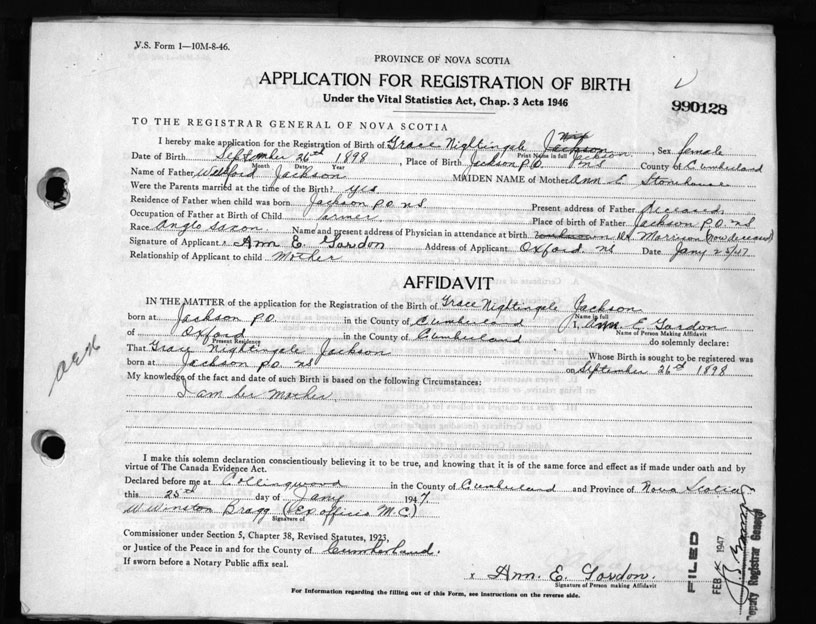 V.S. Form 1—10M-8-46.
PROVINCE OF NOVA SCOTIA
APPLICATION FOR REGISTRATION OF BIRTH
Under the Vital Statistics Act, Chap. 3 Acts 1946
990128
TO THE REGISTRAR GENERAL OF NOVA SCOTIA
I hereby make application for the Registration of Birth of Grace Nightingale Jackson, Sex female
Print Name in full Jackson
Date of Birth September 26th 1898, Place of Birth Jackson P.O. N S County of Cumberland
Month Date Year
Name of Father Welford Jackson MAIDEN NAME of Mother Ann E Stonehouse
Were the Parents married at the time of the Birth? yes
Residence of Father when child was born Jackson P.O. N S. Present address of Father deceased.
Occupation of Father at Birth of Child farmer Place of birth of Father Jackson P.O. N S
Race Anglo Saxon Name and present address of Physician in attendance at birth unknown Dr. Morrison (now deceased)
Signature of Applicant Ann E Gordon Address of Applicant Oxford NS Date Jany 25/47
Relationship of Applicant to child Mother
AFFIDAVIT
IN THE MATTER of the application for the Registration of the Birth of Grace Nightingale Jackson
Name in full
born at Jackson P.O. in the County of Cumberland I, Ann E Gordon
Name of Person Making Affidavit
of Oxford in the County of Cumberland do solemnly declare:
Present Residence
That Grace Nightingale Jackson Whose Birth is sought to be registered was
born at Jackson P.O. N S on September 26th 1898
My knowledge of the fact and date of such Birth is based on the following Circumstances:
I am her Mother
I make this solemn declaration conscientiously believing it to be true, and knowing that it is of the same force and effect as if made under oath and by
virtue of The Canada Evidence Act.
Declared before me at Collingwood in the County of Cumberland and Province of Nova Scotia
this 25th day of Jany 1947
W Winston Bragg (Ex officio M.C.)
Signature of
Commissioner under Section 5, Chapter 38, Revised Statutes, 1923,
or Justice of the Peace in and for the County of Cumberland.
If sworn before a Notary Public affix seal.
x Ann. E. Gordon.
Signature of Person making Affidavit
FILED
FEB 1947
Deputy Registrar General
For Information regarding the filling out of this Form, see instructions on the reverse side.